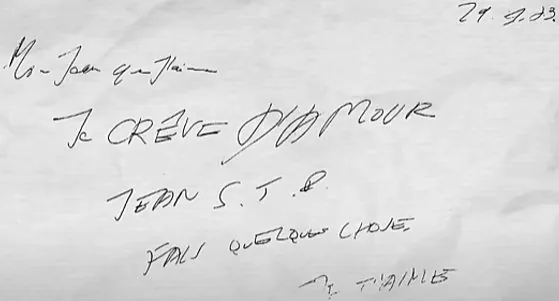 29.7.83.
Mon Jean que j'aime
Je CRÊVE D'AMOUR
JEAN S.T.P.
FAIS QUELQUES CHOSE
Je T'AIME